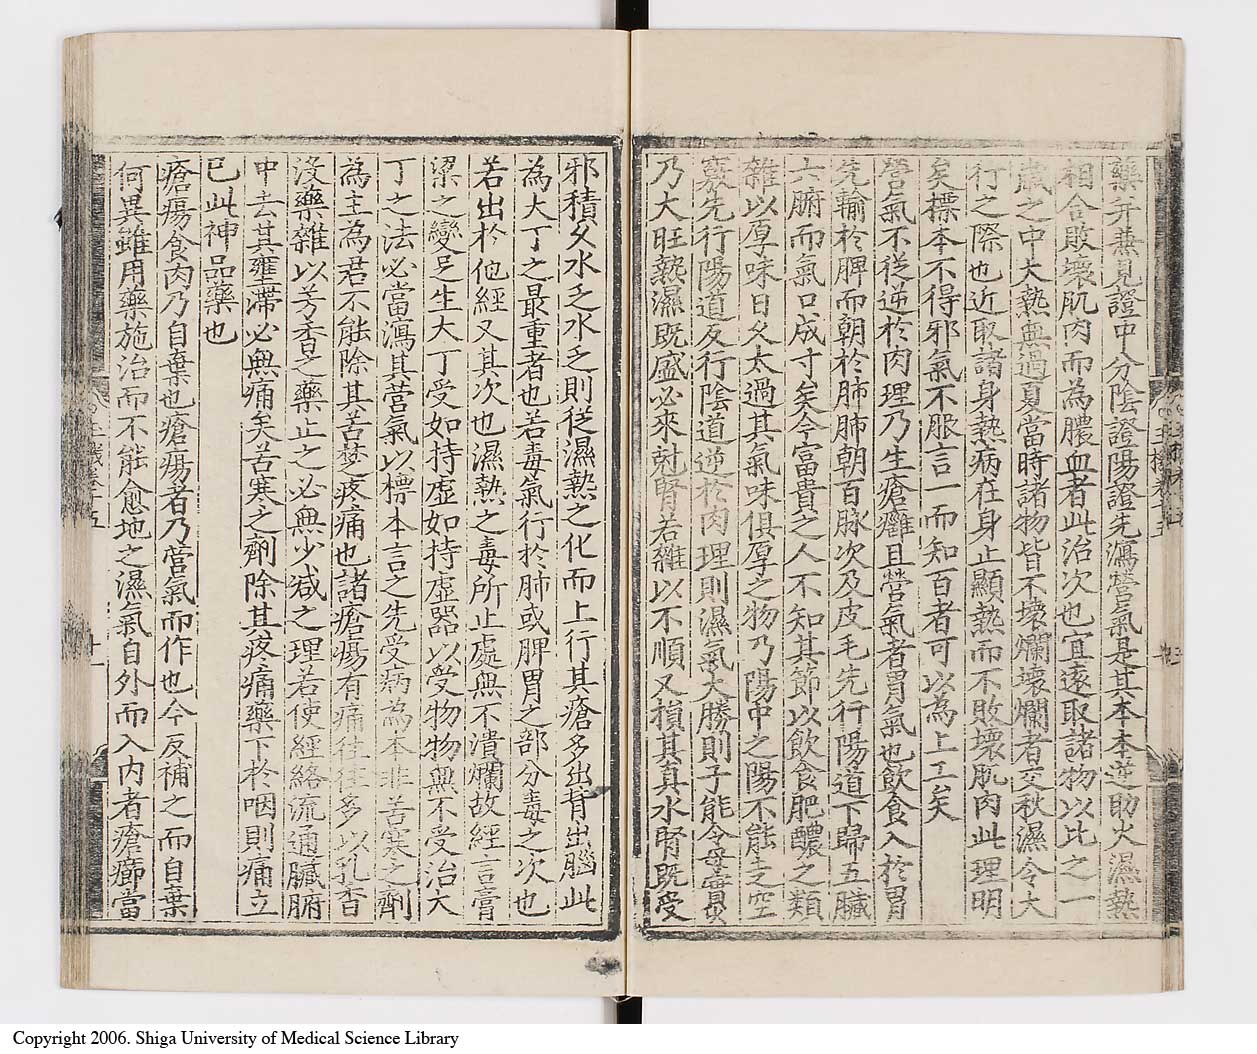 藥并兼見證中分陰證陽證先瀉營氣是其本本逆助火濕熱
相合敗壞肌肉而為膿血者此治次也宜遠取諸物以比之一
歲之中大熱無過夏當時諸物皆不壞爛壞爛者交秋濕令大
行之際也近取諸身熱病在身止顯熱而不敗壞肌肉此理明
矣標本不得邪氣不服言一而知百者可以為上工矣
營氣不從逆於肉理乃生瘡癰且營氣者胃氣也飲食入於胃
先輸於脾而朝於肺肺朝百脉次及皮毛先行陽道下歸五臟
六腑而氣口成寸矣今富貴之人不知其節以飲食肥醲之類
雜以厚味日久太過其氣味俱厚之物乃陽中之陽不能走空
竅先行陽道反行陰道逆於肉理則濕氣大勝則子能令母實火
乃大旺熱濕既盛必來尅腎若雜以不順又損其真水腎既受
邪積久水乏水乏則從濕熱之化而上行其瘡多出背出腦此
為大丁之最重者也若毒氣行於肺或脾胃之部分毒之次也
若出於他經又其次也濕熱之毒所止處無不潰爛故經言膏
梁之變足生大丁受如持虛如持虛器以受物物無不受治大
丁之法必當瀉其營氣以標本言之先受病為本非苦寒之劑
為主為君不能除其苦楚疼痛也諸瘡瘍有痛往往多以乳香
沒藥雜以芳香之藥止之必無少減之理若使經絡流通臟腑
中去其壅滯必無痛矣苦寒之劑除其疼痛藥下於咽則痛立
已此神品藥也
瘡瘍食肉乃自棄也瘡瘍者乃營氣而作也今反補之而自棄
何異雖用藥施治而不能愈地之濕氣自外而入內者瘡癤當
Copyright 2006. Shiga University of Medical Science Library